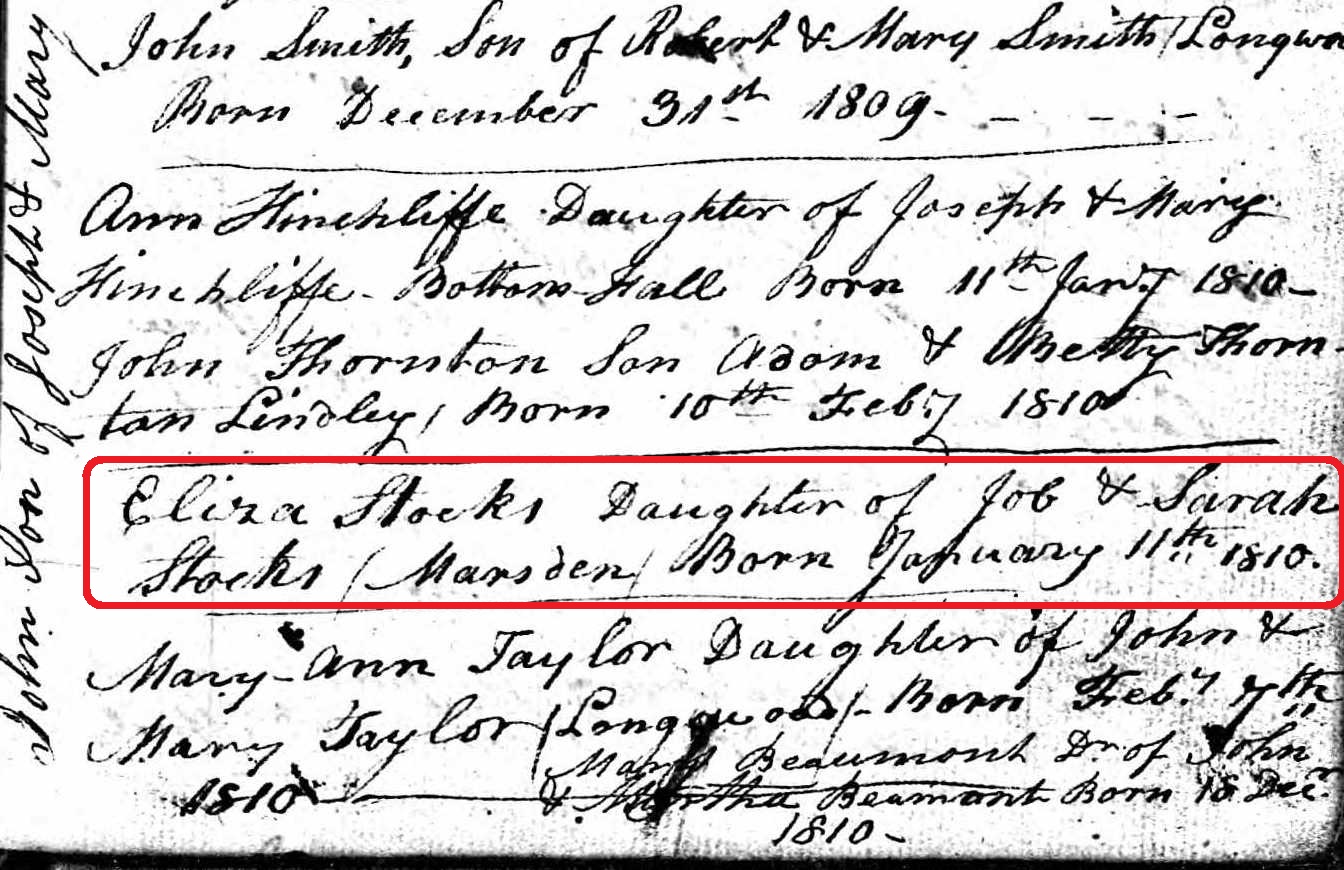 John Smith, Son of Robert & Mary Smith / Longwo
Born December 31st 1809. – – – –
Ann Hinchliffe Daughter of Joseph & Mary
Hinchliffe - Bottom-Hall Born 11th Jany 1810 –
John Thornton Son Adam & Betty Thorn
ton Lindley / Born 10th Feby 1810
Eliza Stocks Daughter of Job & Sarah
Stocks / Marsden / Born January 11th 1810.
Mary-Ann Taylor Daughter of John &
Mary Taylor / Longwood / - Born Feby 7th
1810
Beaumont Dr of John
& Martha Beamont Born 18 Decr
1810 –
John Son of Joseph & Mary